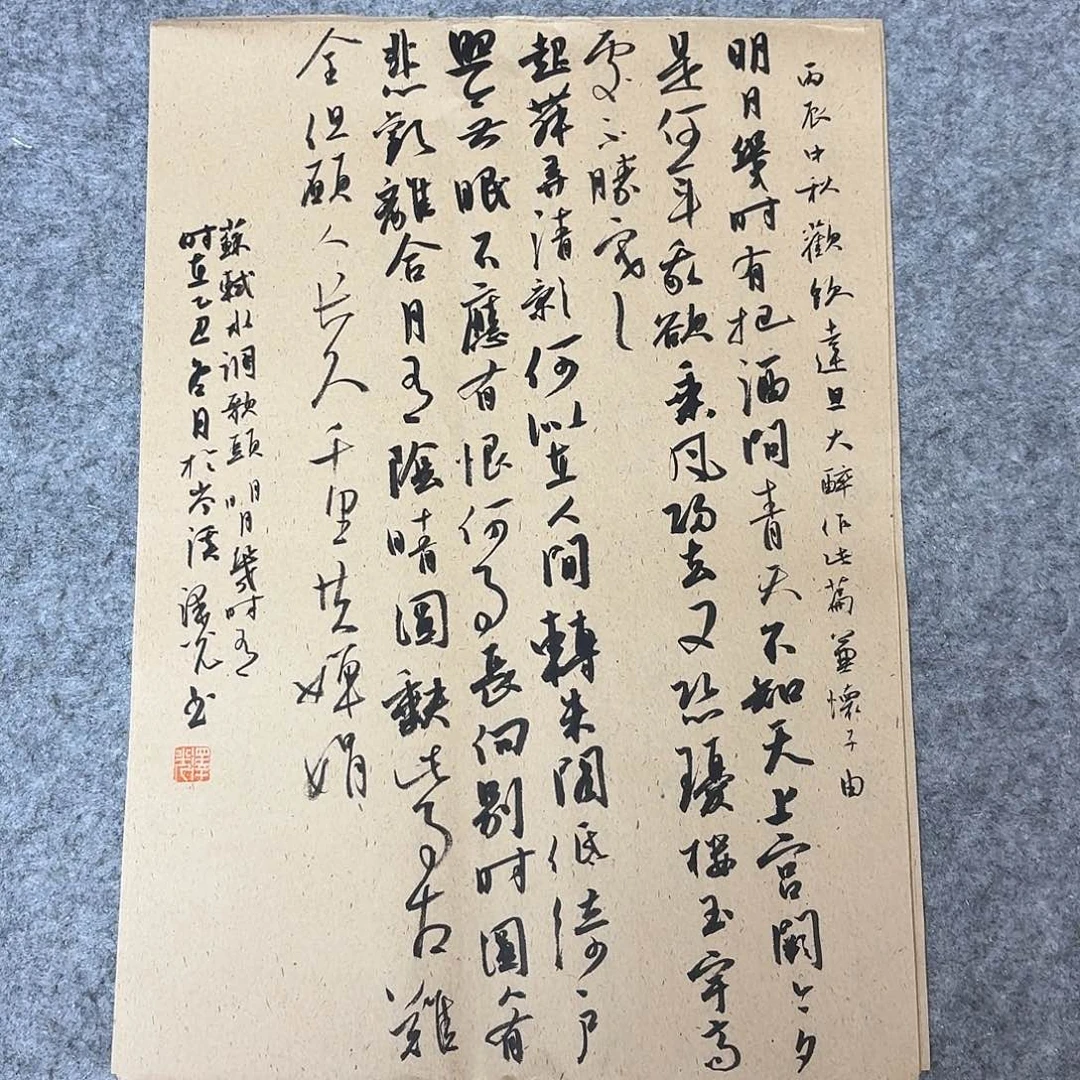 丙辰中秋歡飲達旦大醉作此篇兼懷子由
明月幾时有把酒問青天不知天上宫闕今夕
是何年我欲乘风归去又恐瓊楼玉宇高
處不勝寒
起舞弄清影何似在人間轉朱阁低绮户
照无眠不應有恨何事長向别时圓人有
悲歡離合月有陰晴圓缺此事古難
全但願人长久千里共嬋娟
蘇軾水调歌頭明月幾时有
时在乙月於岑溪书